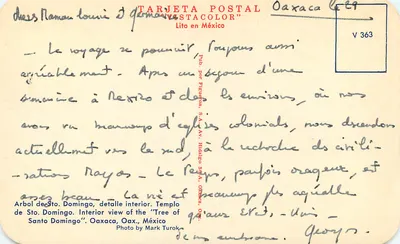 TARJETA POSTAL
"VISTACOLOR"
Lito en México
V 363
Oaxaca le 29
chers Maman Louis et Germaine
- Le voyage se poursuit, toujours aussi
agréablement. Apres un sejour d'une
semaine à Mexico et dans les environs, où nous
avons vu beaucoup d'eglises coloniales, nous descendons
actuellement vers le sud, à la recherche des civili-
sations Mayas. - Le temps, parfois orageux, est
assez beau - La vie est beaucoup plus agréable
qu'aux Etats-Unis -
Georges
Arbol de Sto. Domingo, detalle interior. Templo
de Sto. Domingo. Interior view of the "Tree of
Santo Domingo". Oaxaca, Oax., México
Photo by Mark Turok